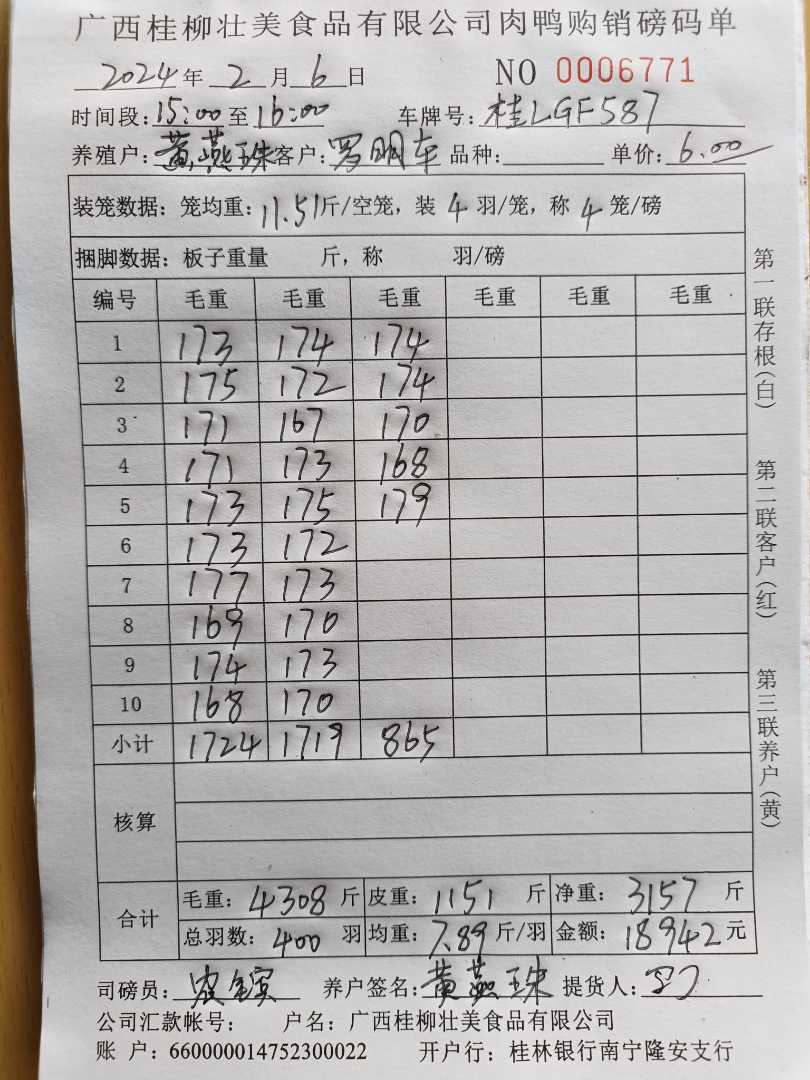 广西桂柳壮美食品有限公司肉鸭购销磅码单
2024年2月6日 NO 0006771
时间段:15:00至16:00 车牌号:桂LGF587
养殖户:黄燕珠客户:罗明车 品种: 单价:6.00
装笼数据:笼均重:11.51斤/空笼,装4羽/笼,称4笼/磅
捆脚数据:板子重量 斤,称 羽/磅
编号 毛重 毛重 毛重 毛重 毛重 毛重
1 173 174 174
2 175 172 174
3 171 167 170
4 171 173 168
5 173 175 179
6 173 172
7 177 173
8 169 170
9 174 173
10 168 170
小计 1724 1719 865
核算
合计
毛重:4308斤 皮重:1151斤 净重:3157斤
总羽数:400羽 均重:7.89斤/羽 金额:18942元
司磅员: 养户签名:黄燕珠 提货人:
公司汇款帐号: 户名:广西桂柳壮美食品有限公司
账 户:660000014752300022 开户行:桂林银行南宁隆安支行
第一联存根(白)
第二联客户(红)
第三联养户(黄)